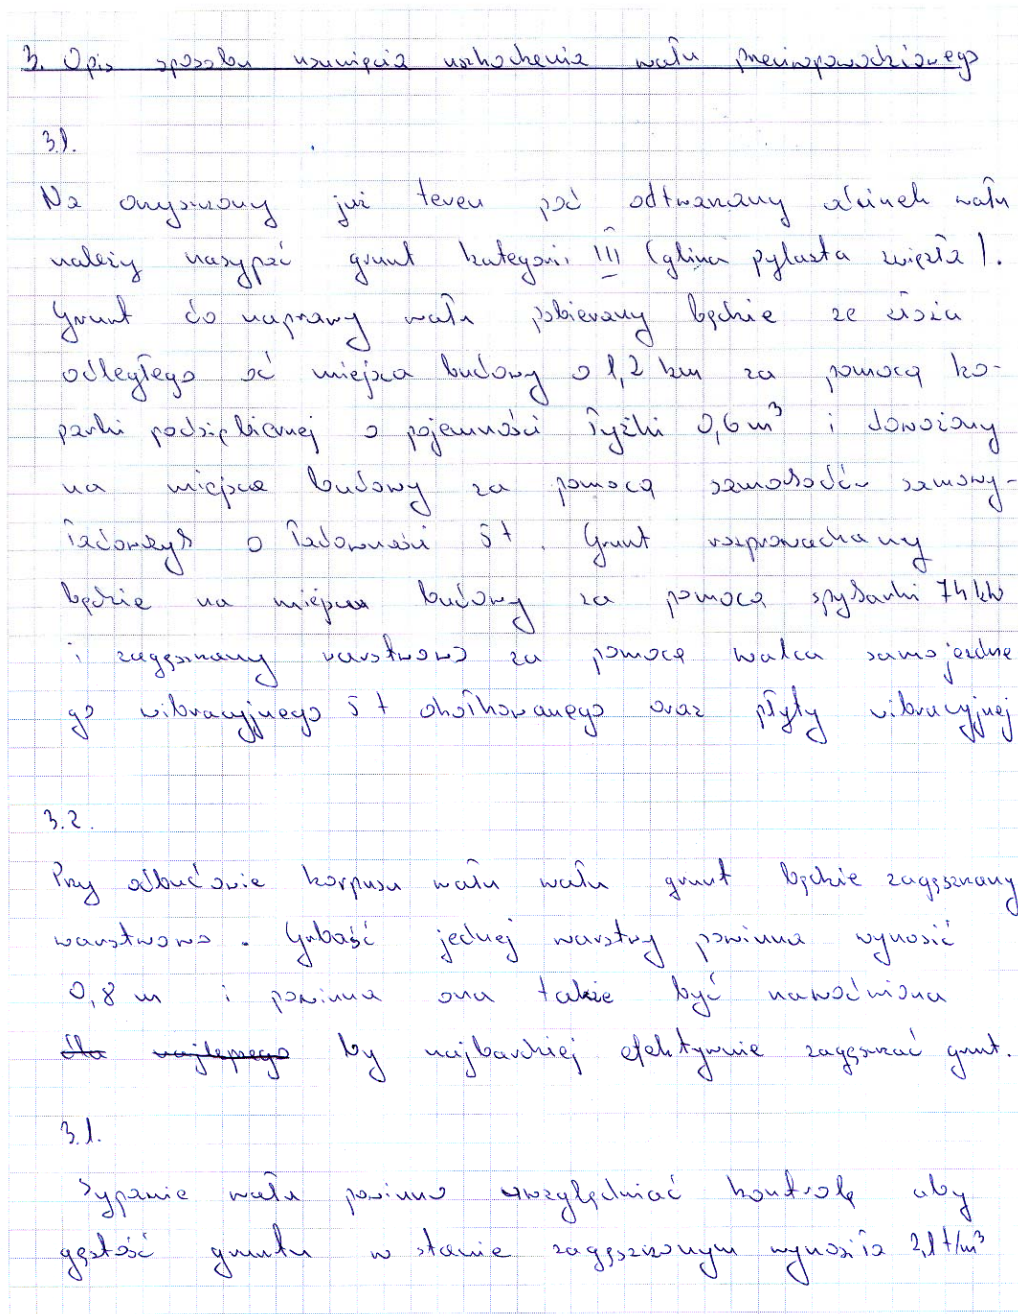 3. Opis sposobu usunięcia uszkodzenia wału przeciwpowodziowego
3.1.
Na oczyszczony już teren pod odtwarzany odcinek wału
należy nasypać grunt kategorii III (glina pylasta zwięzła).
Grunt do naprawy wału pobierany będzie ze złoża
odległego od miejsca budowy o 1,2 km za pomocą ko-
parki podsiębiernej o pojemności łyżki 0,6 m³ i dowożony
na miejsce budowy za pomocą samochodów samowy-
ładowczych o ładowności 5 t. Grunt rozprowadzany
będzie na miejscu budowy za pomocą spycharki 74 kW
i zagęszczany warstwowo za pomocą walca samojezdne
go wibracyjnego 5 t okołkowanego oraz płyty wibracyjnej
3.2.
Przy odbudowie korpusu wału wału grunt będzie zagęszczany
warstwowo. Grubość jednej warstwy powinna wynosić
0,8 m i powinna ona także być nawodniona
dla najlepszego by najbardziej efektywnie zagęszczać grunt.
3.1.
Sypanie wału powinno uwzględniać kontrolę aby
gęstość gruntu w stanie zagęszczonym wynosiła 2,1 t/m³